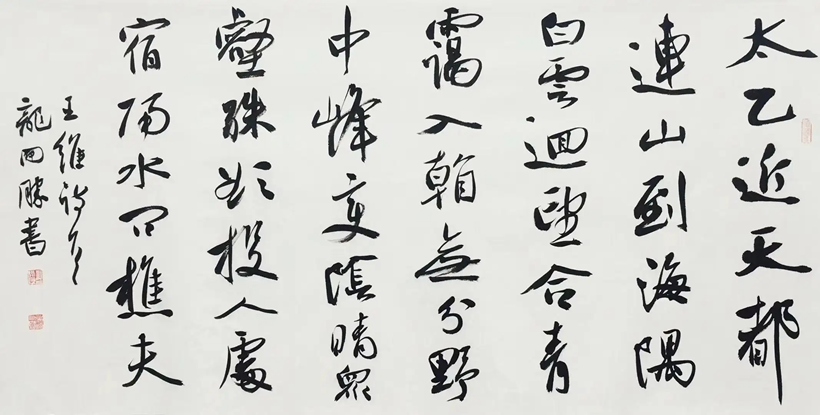 太乙近天都
連山到海隅
白雲迴望合青
靄入看無分野
中峰變陰晴眾
壑殊欲投人處
宿隔水問樵夫
王維詩
龍回勝書